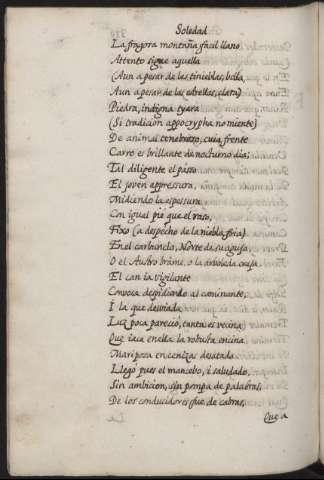 Soledad
La fragora montaña facil llano
Attento sigue aquella
(Aun a pesar de las tinieblas, bella,
Aun a pesar de las estrellas, clara)
Piedra, indigna tyara
(Si tradicion appocrypha no miente)
De animal tenebroso, cuia frente
Carro es brillante de nocturno dia;
Tal diligente el passo
El joven appressura,
Midiendo la espessura
Con igual pie que el raso,
Fixo (a despecho de la niebla fria)
En el carbunclo, Norte de su aguja,
O el Austro brâme, o la arboleda cruja.
El can ia vigilante
Convoca despidiendo al caminante,
I la que desviada
Luz poca pareciò, tanta es vecina,
Que iace en ella la robusta encina
Mariposa en cenizas desatada
Llegò pues el mancebo, i saludado,
Sin ambicion, sin pompa de palabras,
De los conducidores fue de cabras,
Que a